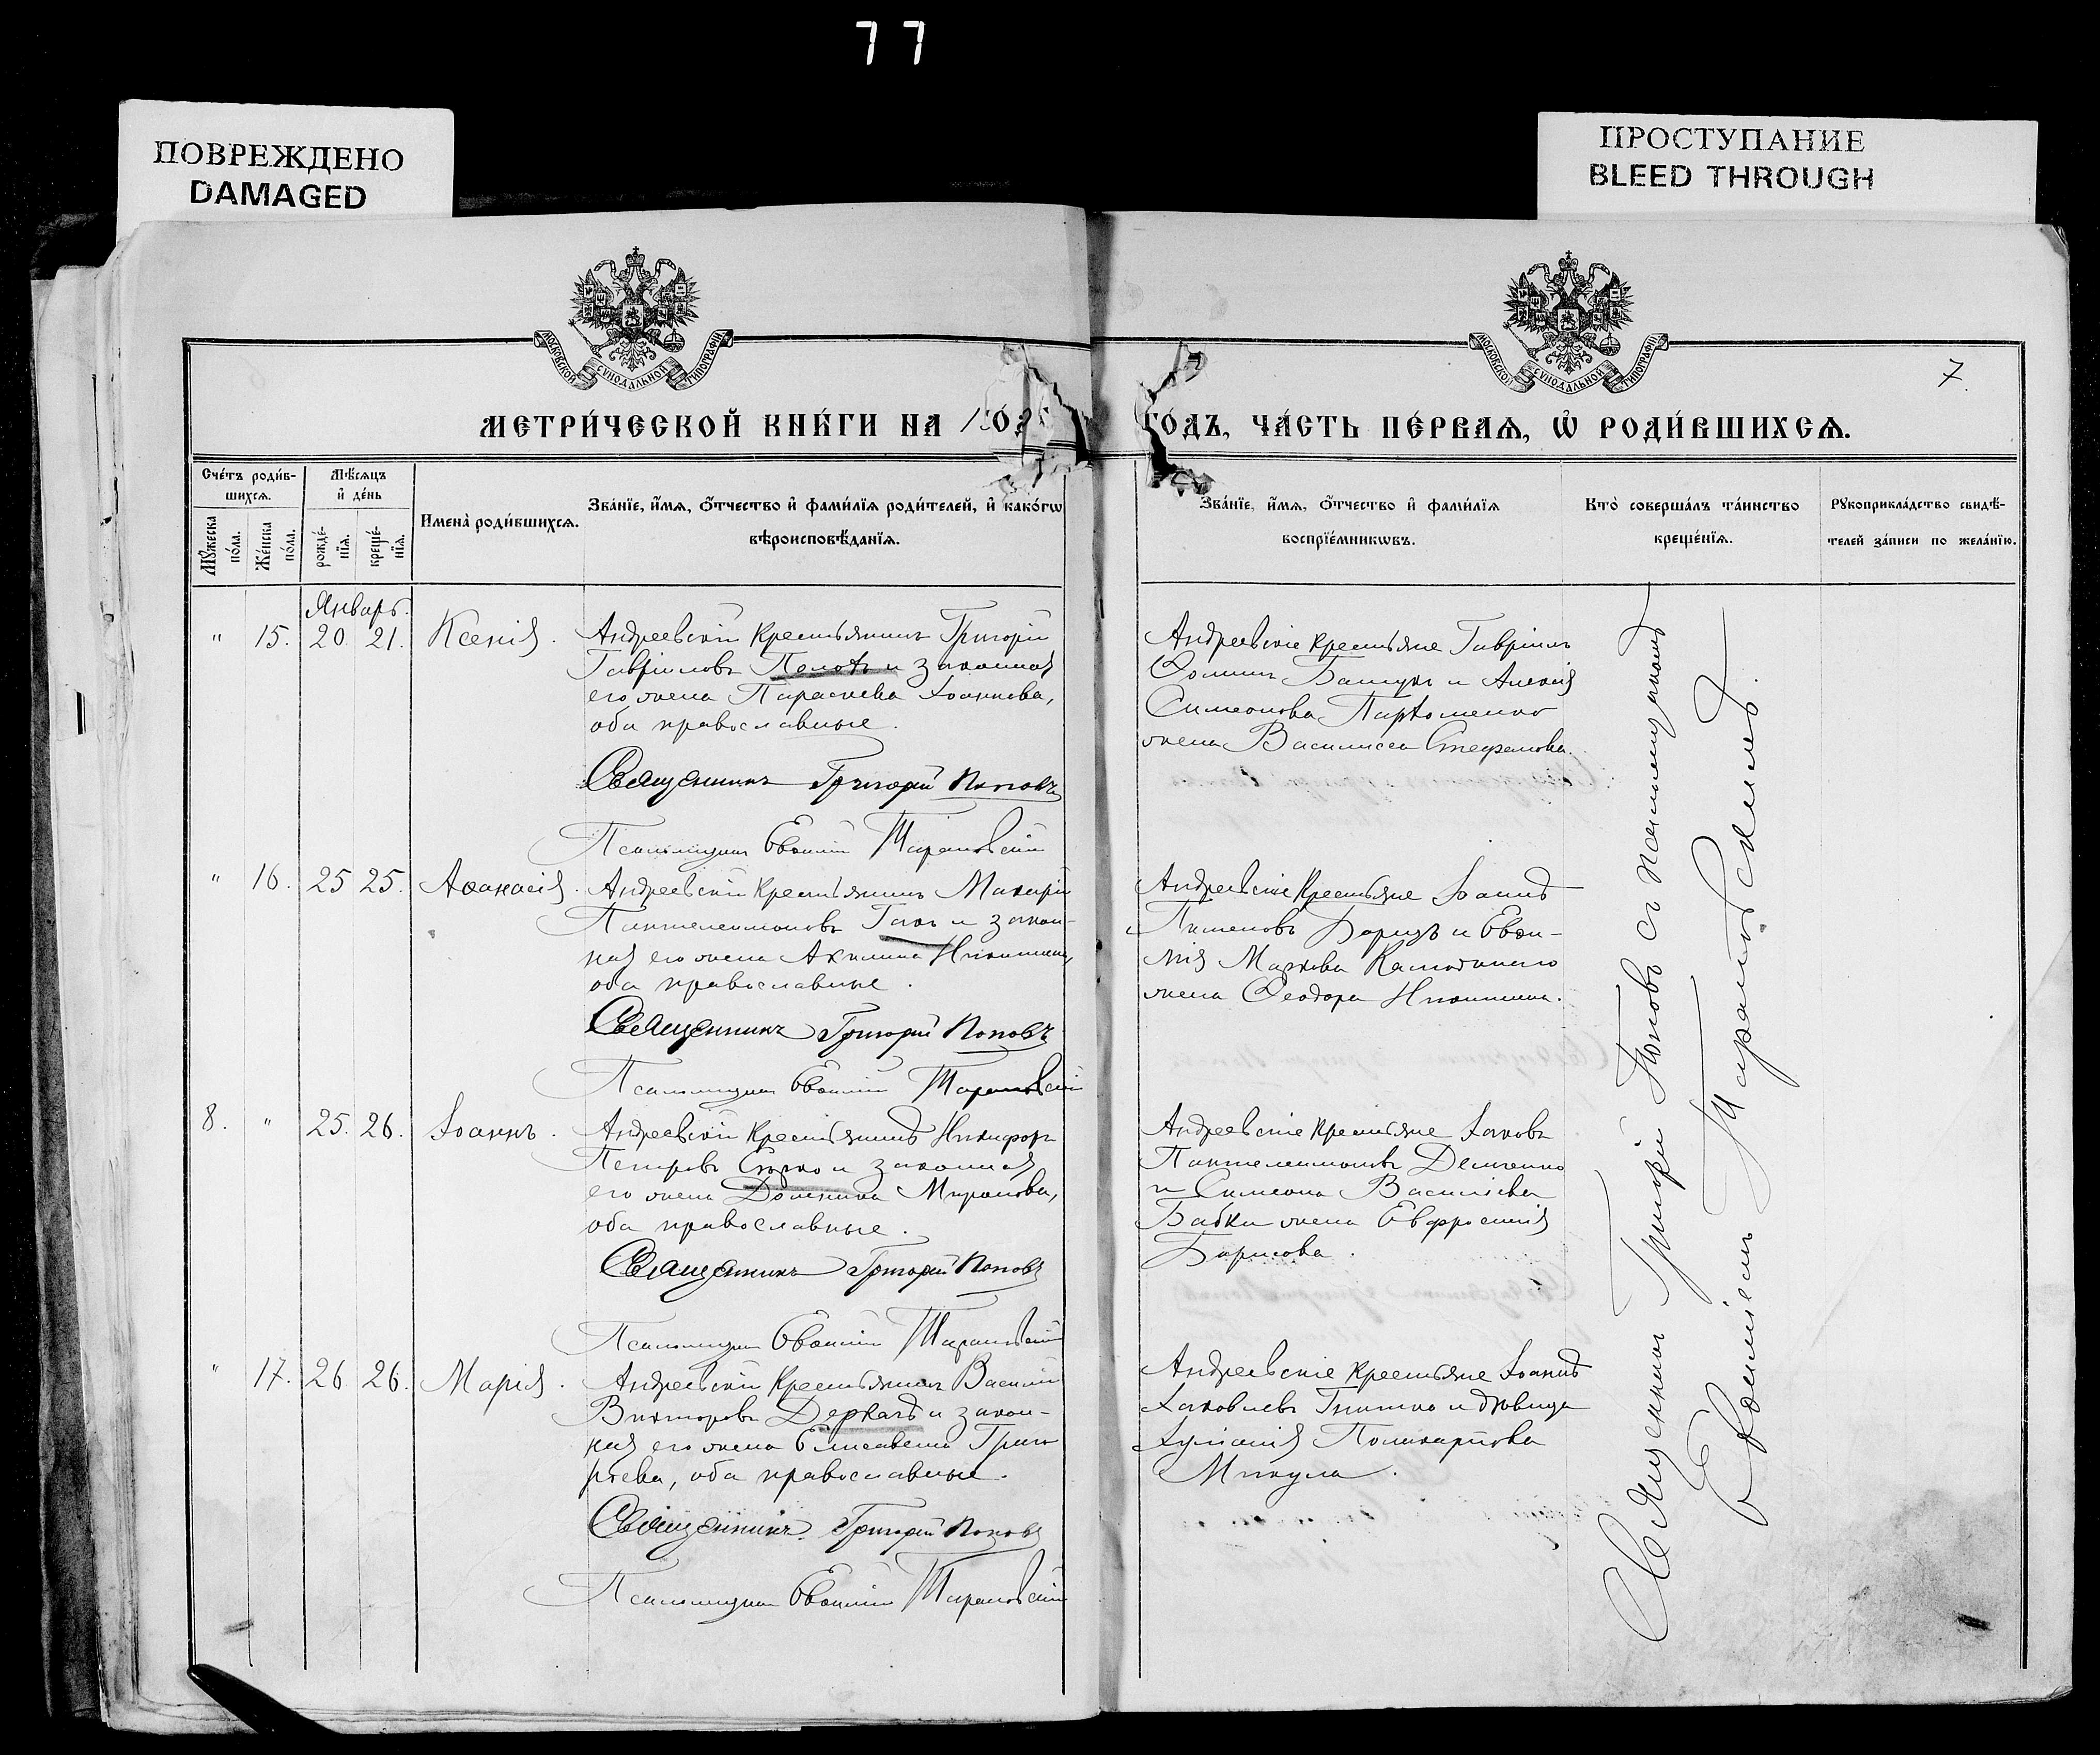 77
ПОВРЕЖДЕНО
DAMAGED
ПРОСТУПАНИЕ
BLEED THROUGH
МОСКОВСКОЙ СУНОДАЛЬНОЙ ТИПОГРАФІИ
МОСКОВСКОЙ СУНОДАЛЬНОЙ ТИПОГРАФІИ
7.
МЕТРИ́ЧЕСКОЙ КНИ́ГИ НА
ГО́ДЪ, ЧА́СТЬ ПЕ́РВАѦ, Ѡ РОДИ́ВШИХСѦ.
Сче́тъ роди́в-
шихсѧ.
Мꙋ́жеска по́ла.
Же́нска по́ла.
Мѣ́сѧцъ
и҆ де́нь
рожде́-
нїѧ.
креще́-
нїѧ.
И҆мена̀ роди́вшихсѧ.
Зва́нїе, и҆́мѧ, ѻ҆́тчество и҆ фами́лїѧ роди́телей, и҆ како́гѡ
вѣроисповѣ́данїѧ.
Зва́нїе, и҆́мѧ, ѻ҆́тчество и҆ фами́лїѧ
воспрїе́мникѡвъ.
Кто̀ соверша́лъ та́инство
креще́нїѧ.
Рꙋкоприкла́дство свидѣ́-
телей за́писи по жела́нїю.
Январь.
" 15. 20. 21. Ксенія.
Андреевскій крестьянинъ Григорій
Гавріиловъ и законная
его жена Параскева Іоаннова,
оба православные.
Священникъ Григорій Поповъ
Псаломщикъ Евѳимій Тарановскій
Андреевскіе крестьяне Гавріилъ
Ѳоминъ и Алексія
Симеонова Пархоменко
жена Василисса Стефанова.
" 16. 25 25. Аѳанасія.
Андреевскій крестьянинъ Макарій
Пантелеимоновъ Гакъ и закон-
ная его жена Акилина Никитина,
оба православные.
Священникъ Григорій Поповъ
Псаломщикъ Евѳимій Тарановскій
Андреевскіе крестьяне Іоаннъ
Пименовъ и Евѳи-
мія Маркова
жена Ѳеодора Никитина.
8. " 25. 26. Іоаннъ.
Андреевскій крестьянинъ Никифоръ
Петровъ и законная
его жена Домникія Миронова,
оба православные.
Священникъ Григорій Поповъ
Псаломщикъ Евѳимій Тарановскій
Андреевскіе крестьяне Іаковъ
Пантелеимоновъ Демченко
и Симеона Васильева
Бабки жена Евфросинія
Борисова.
" 17. 26 26. Марія.
Андреевскій крестьянинъ Василій
Викторовъ Деркачъ и закон-
ная его жена Елисавета Григо
рьева, оба православные.
Священникъ Григорій Поповъ
Псаломщикъ Евѳимій Тарановскій
Андреевскіе крестьяне Іоаннъ
Іаковлевъ и дѣвица
Іуліанія Поликарпова
Микула.
Священникъ Григорій Поповъ съ псаломщикомъ
Евѳиміемъ Тарановскимъ.